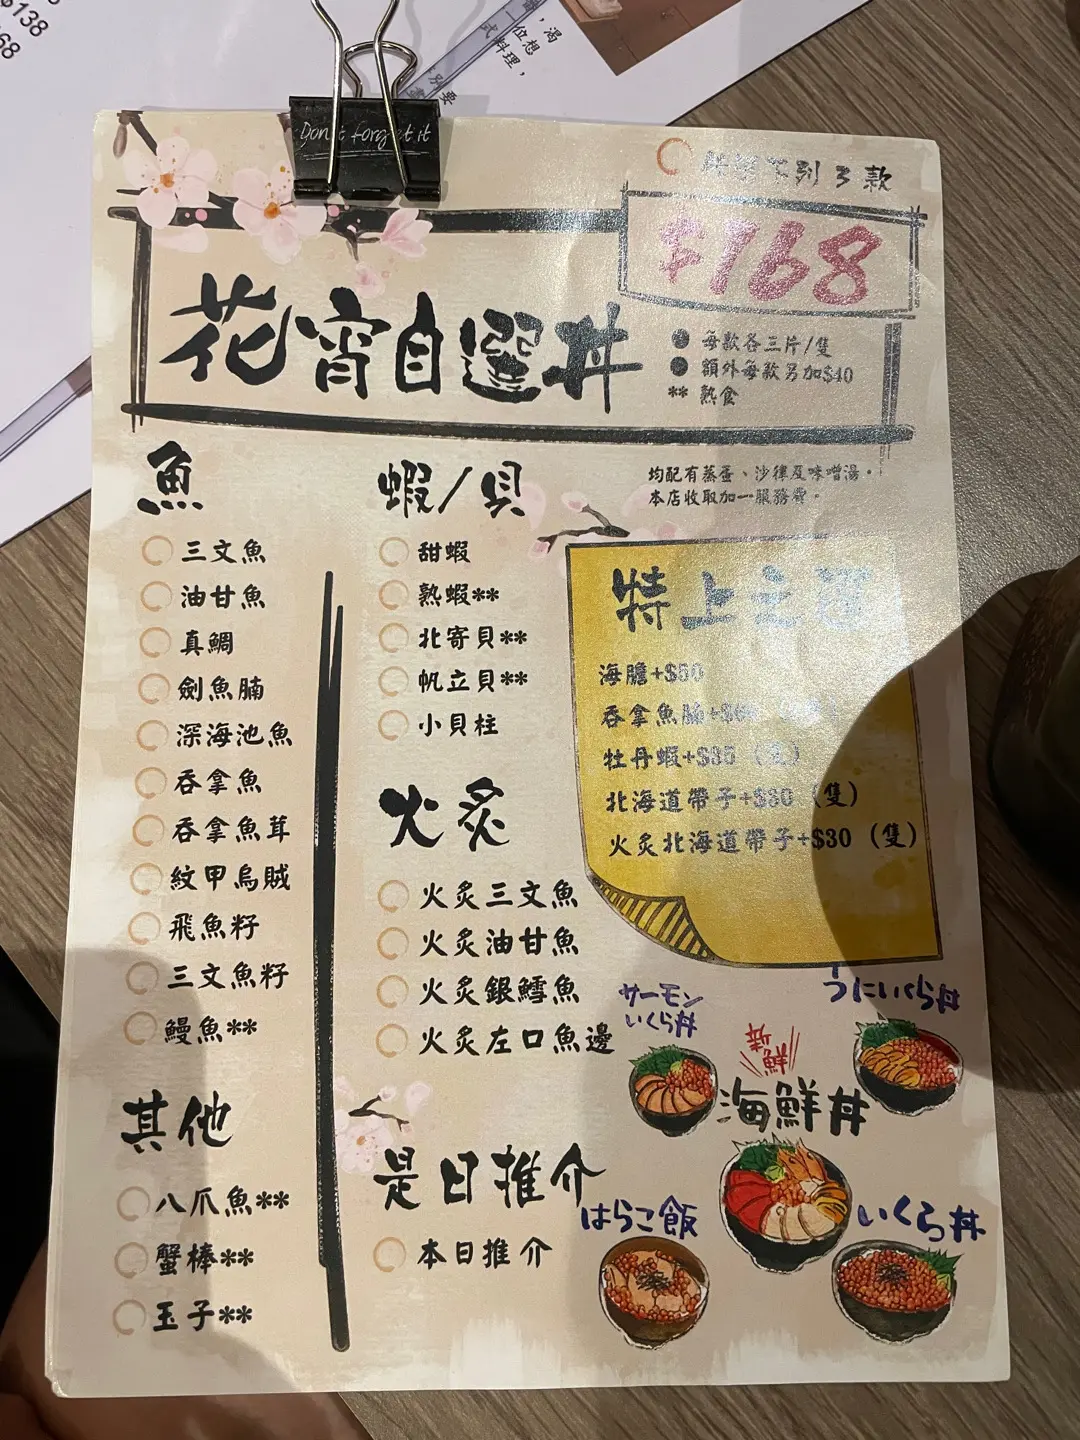 $138
68
渴
位想
式料理，
別要
Don't forget it
下列3款
$168
花宵自選丼
每款各三片/隻
額外每款另加$40
** 熟食
均配有蒸蛋、沙律及味噌湯。
本店收取加一服務費。
魚
三文魚
油甘魚
真鯛
劍魚腩
深海池魚
吞拿魚
吞拿魚茸
紋甲烏賊
飛魚籽
三文魚籽
鰻魚**
其他
八爪魚**
蟹棒**
玉子**
蝦/貝
甜蝦
熟蝦**
北寄貝**
帆立貝**
小貝柱
火炙
火炙三文魚
火炙油甘魚
火炙銀鱈魚
火炙左口魚邊
是日推介
本日推介
特上之選
海膽+$50
吞拿魚腩
牡丹蝦+$35（隻）
北海道帶子+$30（隻）
火炙北海道帶子+$30（隻）
サーモン
いくら丼
うにいくら丼
新鮮
海鮮丼
はらこ飯
いくら丼